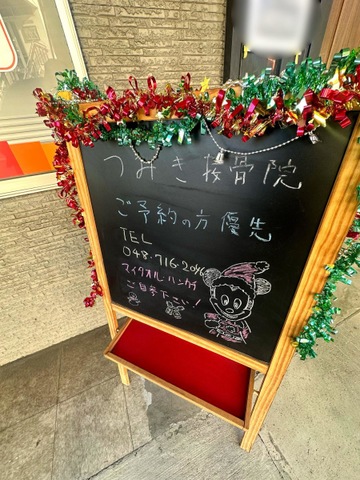 つみき接骨院
ご予約の方優先
TEL
048-716-2046
マイタオル・ハンカチ
ご日参下さい!